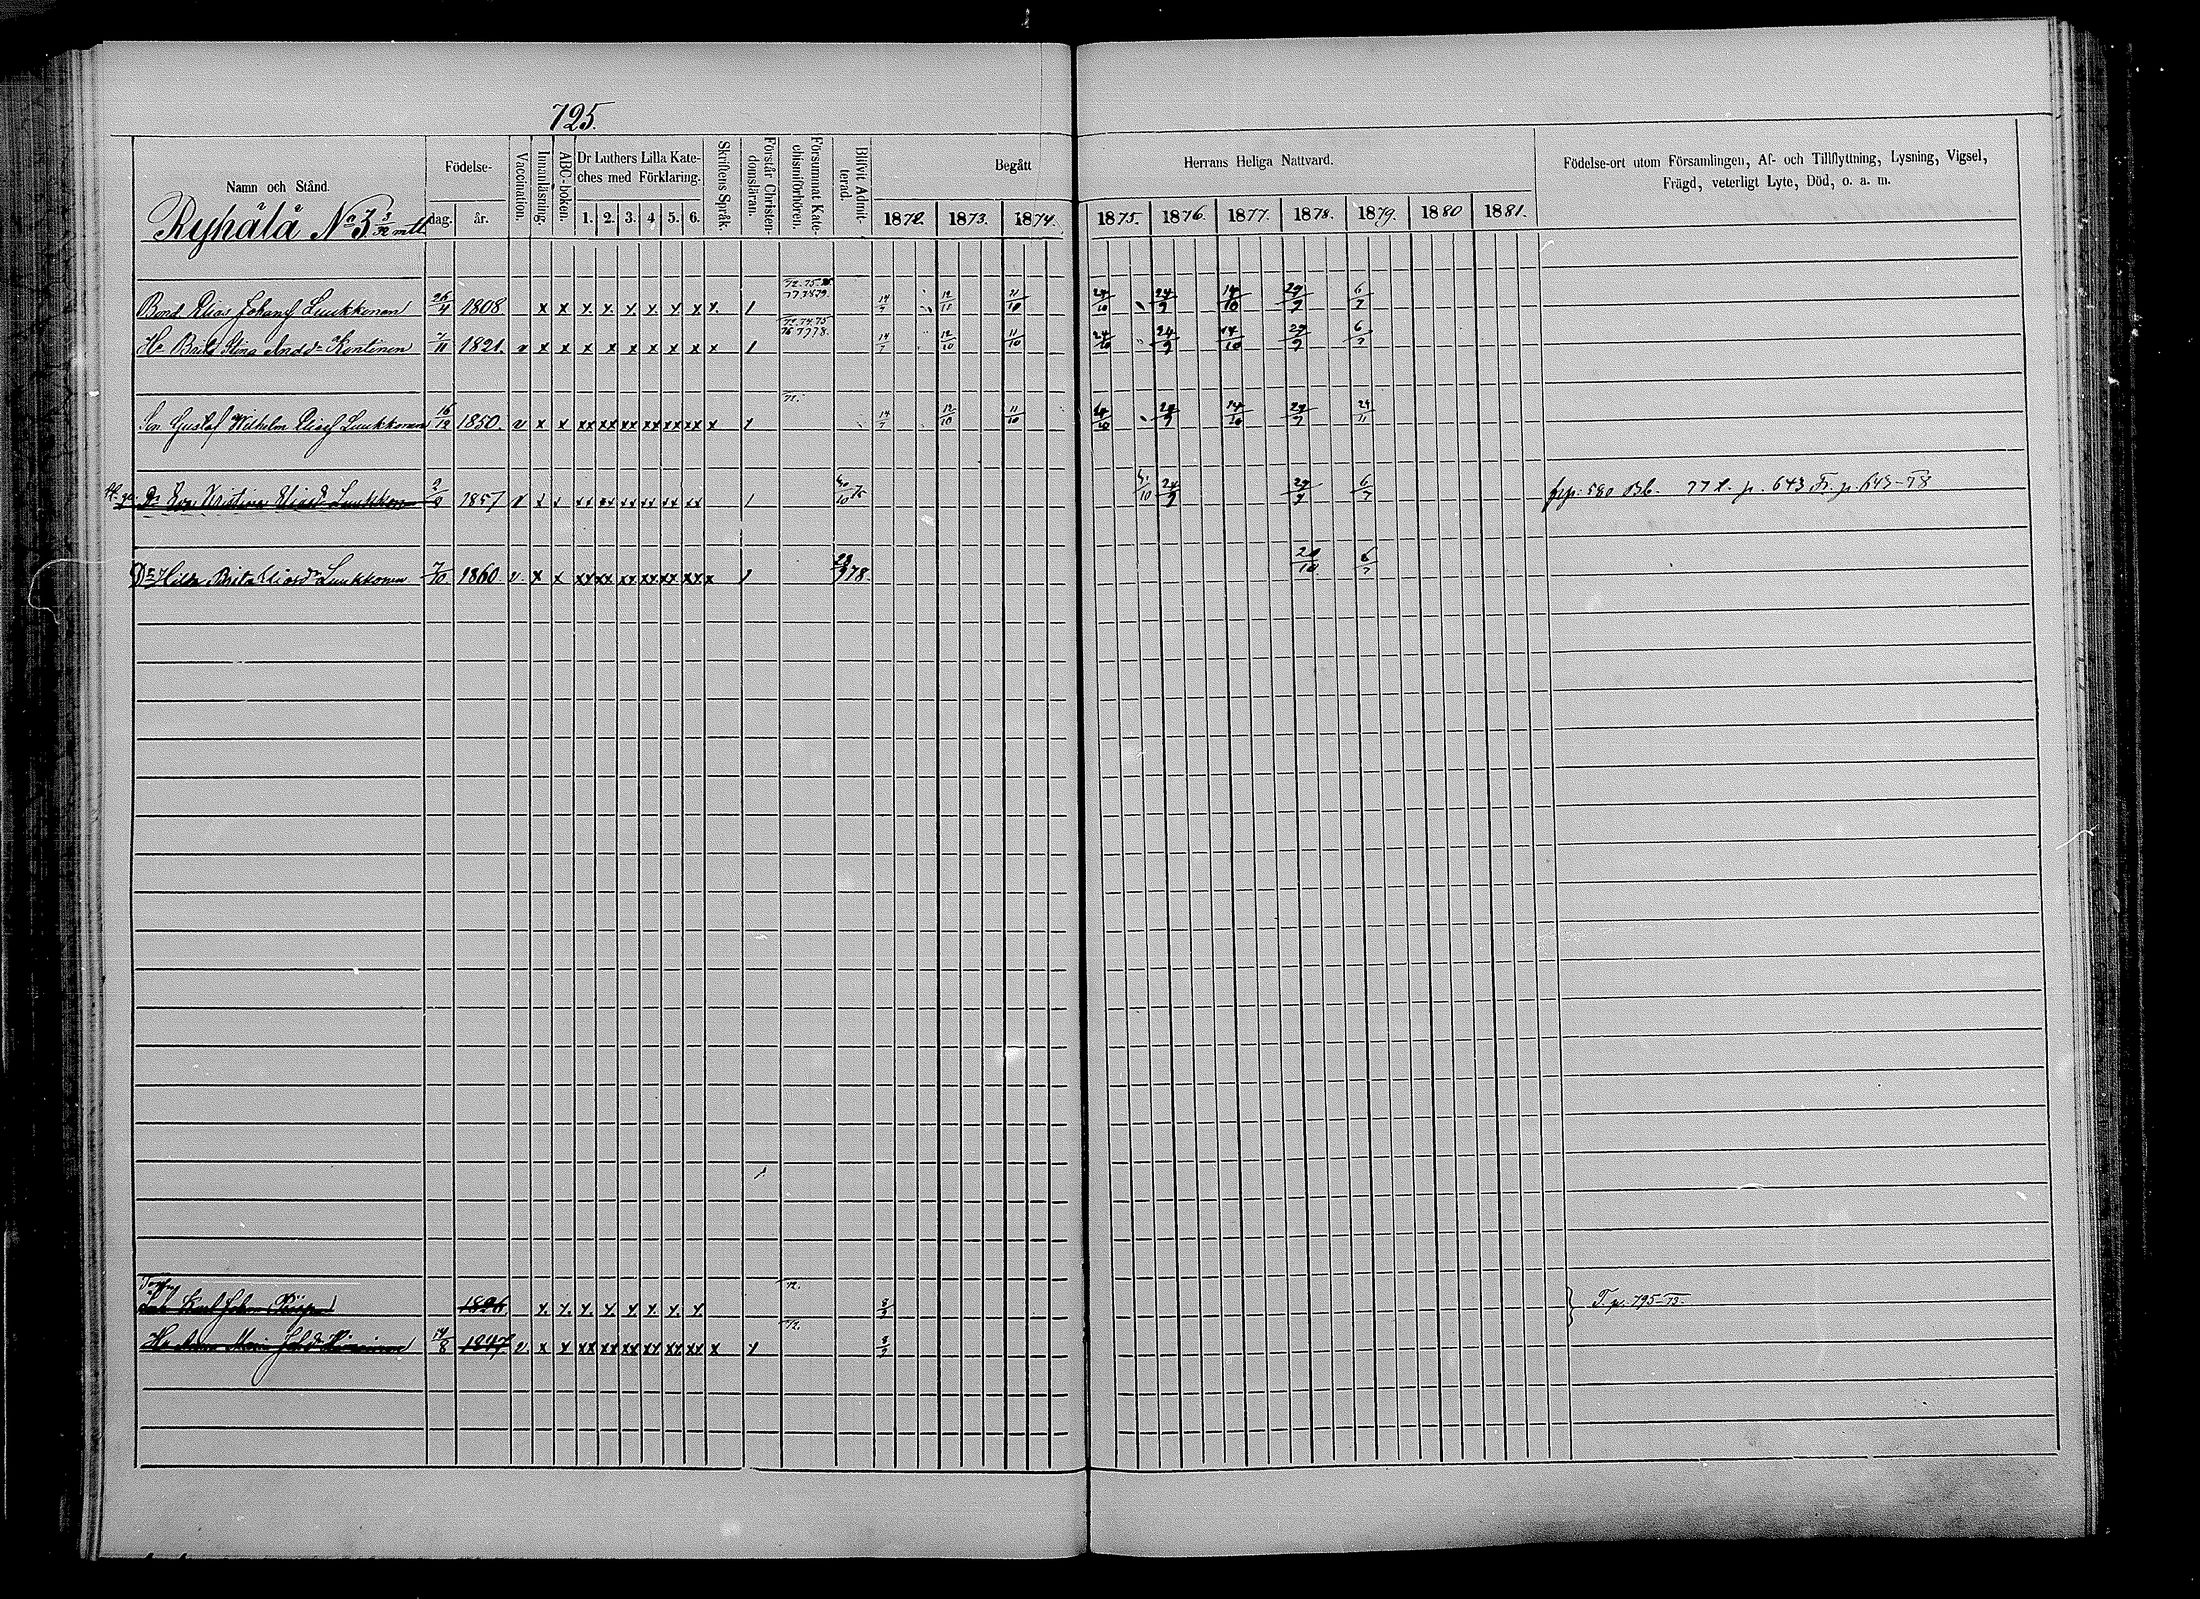 725.
Namn och Stånd.
Födelse-
dag.
år.
Vaccination.
Innanläsning.
ABC-boken.
Dr Luthers Lilla Kate-
ches med Förklaring.
1. 2. 3. 4 5. 6.
Skriftens Språk.
Förstår Christen-
domsläran.
Försummat Kate-
chismiförhören.
Blifvit Admit-
terad.
Begått
Herrans Heliga Nattvard.
1872. 1873. 1874. 1875. 1876. 1877. 1878. 1879. 1880 1881.
Födelse-ort utom Församlingen, Af- och Tillflyttning, Lysning, Vigsel,
Frägd, veterligt Lyte, Död, o. a. m.
Ryhälä No 3 3/32 mtl
Bond Elias Johans Luukkonen 26/4 1808 x x x x x x x x x 1 14/7 12/10 11/10 24/10 24/9 14/10 29/9 6/7
Hu Brita Stina Andd Kontinen 7/11 1821. v x x x x x x x x x 1 14/7 12/10 11/10 24/10 24/9 14/10 29/9 6/7
Son Gustaf Wilhelm Eliass Luukkonen 16/12 1850. v x x xx xx xx xx xx xx x 1 72. 14/7 12/10 11/10 24/10 24/9 14/10 29/9 24/11
Dr Eva Kristina Eliasd Luukkonen 1857 v x x xx xx xx xx xx xx 1 24/9 29/9 6/7 p. 643 Fr. p. 643-78
Dr Hilda Brita Eliasd Luukkonen 7/10 1860 v. x x xx xx xx xx xx xx x 1 78. 6/7
Karl Johan x x x x x x x x 72. T. p. 795-73.
Hu Anna Maria Johd 14/8 1847 v x x xx xx xx xx xx xx x 1 72.